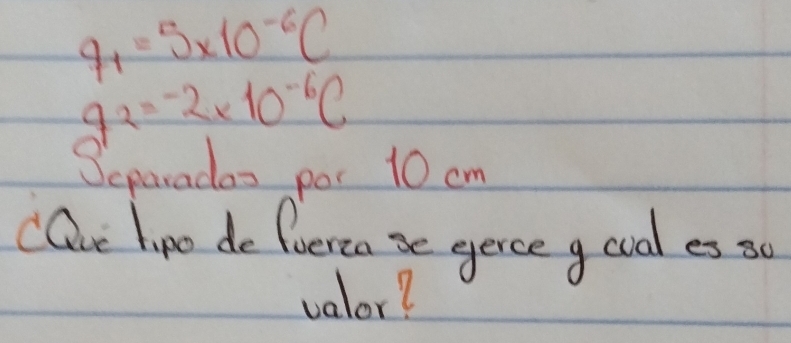 q₁ = 5x10⁻⁶C
q₂ = ⁻2x10⁻⁶C
Separados por 10 cm
¿Qué tipo de fuerza se ejerce y cual es su
valor?